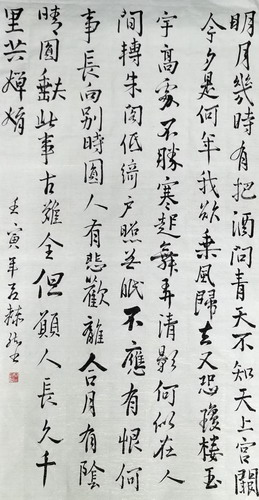 明月幾時有把酒問青天不知天上宮闕
今夕是何年我欲乘風歸去又恐瓊樓玉
宇高處不勝寒起舞弄清影何似在人
間轉朱閣低綺戶照無眠不應有恨何
事長向別時圓人有悲歡離合月有陰
晴圓缺此事古難全但願人長久千
里共嬋娟
壬寅年